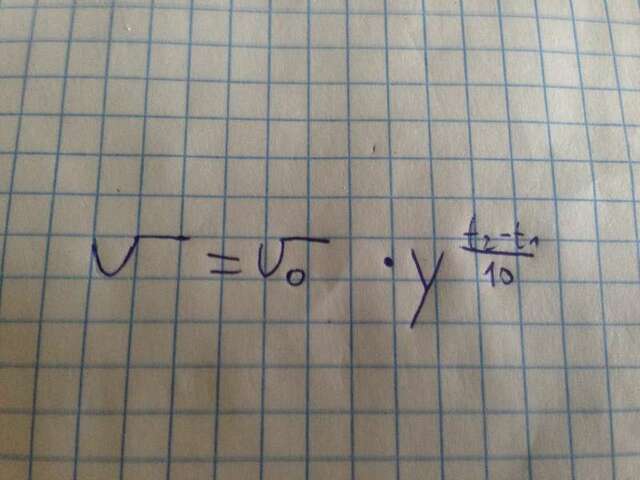 √ = √₀ · y^((t₂-t₁)/10)